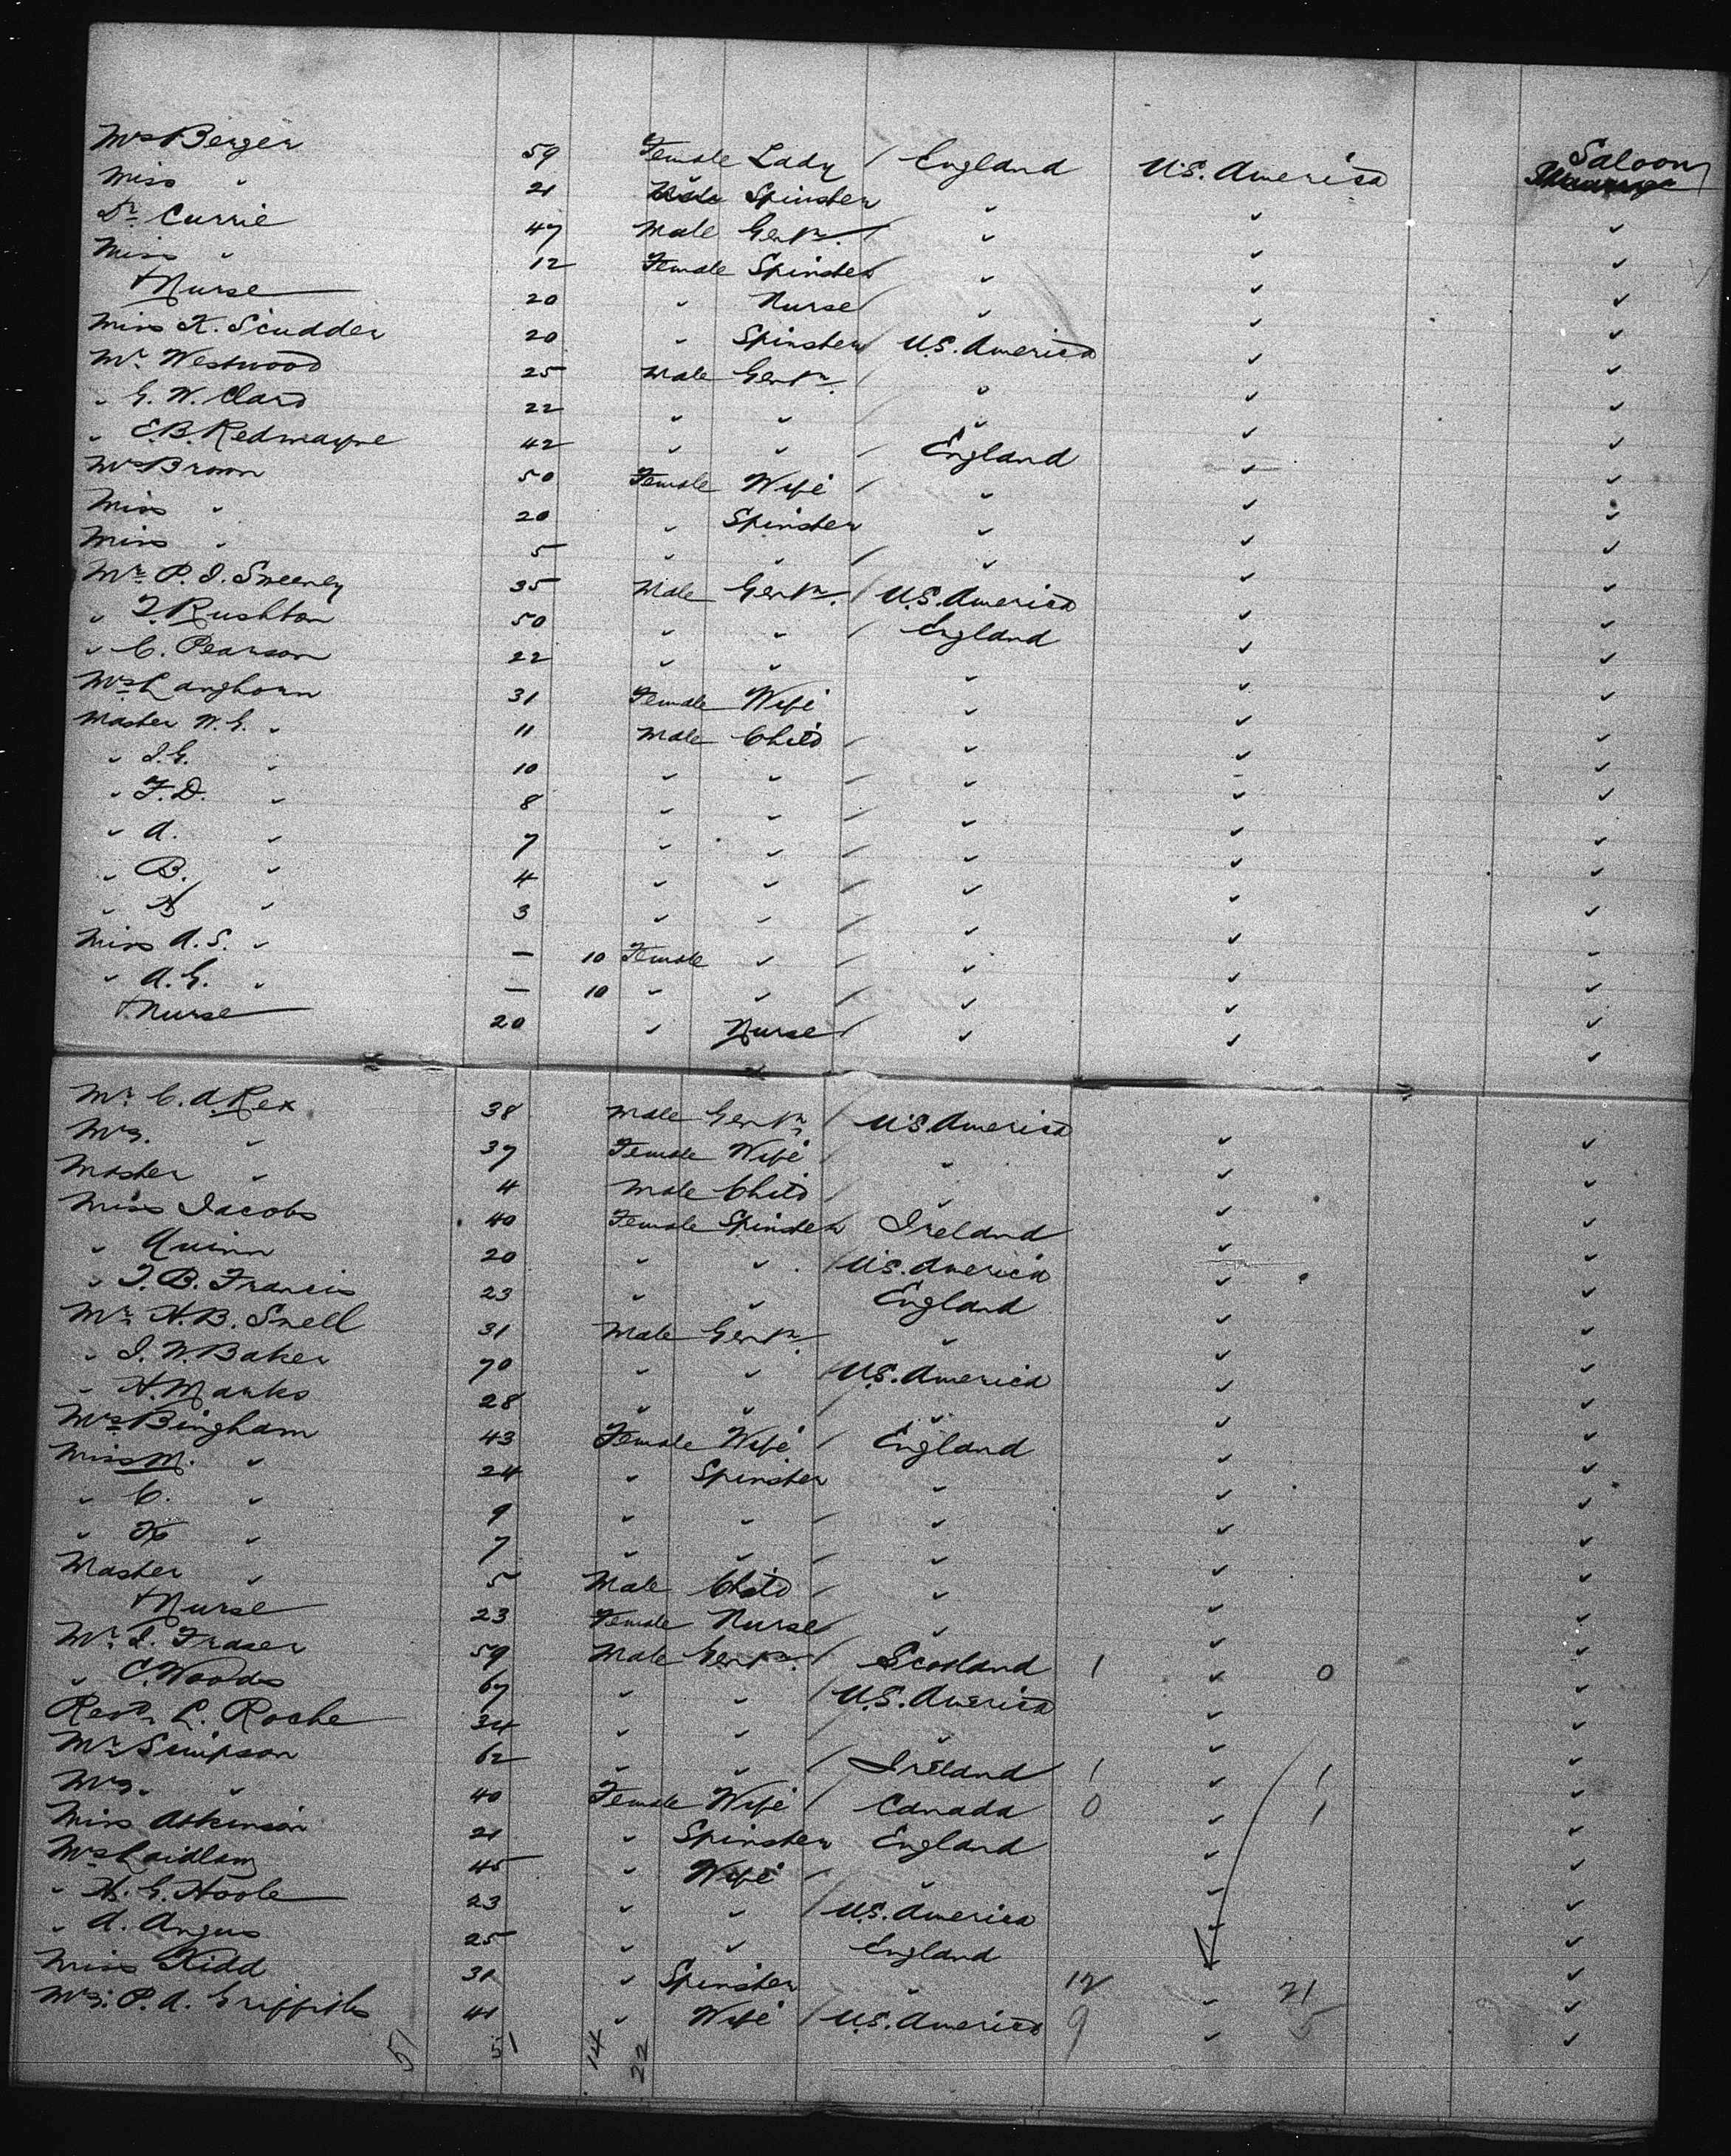 Mrs Berger 59 Female Lady / England U.S. America Saloon
Miss " 21 Spinster " " "
Dr Currie 47 Male Gentn. / " " "
Miss " 12 Female Spinster " " "
+ Nurse 20 " Nurse / " " "
Miss K. Scudder 20 " Spinster U.S. America " "
Mr. Westwood 25 Male Gentn. / " " "
" G. W. Clard 22 " " / " " "
" E. B. Redmayne 42 " " / England " "
Mrs Brown 50 Female Wife / " " "
Miss " 20 " Spinster " " "
Miss " 5 " " / " " "
Mr. P. J. Sweeney 35 Male Gentn. / U.S. America " "
" T. Rushton 50 " " / England " "
" C. Pearson 22 " " " " "
Mrs Langhorn 31 Female Wife / " " "
Master W. G. " 11 Male Child / " " "
" J. G. " 10 " " / " " "
" F. D. " 8 " " / " " "
" A. " 7 " " / " " "
" B. " 4 " " / " " "
" " 3 " " / " " "
Miss A. S. " — 10 Female " / " " "
" A. G. " — 10 " " / " " "
+ Nurse 20 " Nurse / " " "
Mr. C. A. Rex 38 Male Gentn / U.S. America " "
Mrs. " 37 Female Wife / " " "
Master " 4 Male Child / " " "
Miss Jacobs 40 Female Spinster Ireland " "
" Quinn 20 " " / U.S. America " "
" T. B. Francis 23 " " England " "
Mr. H. B. Snell 31 Male Gentn. " " "
" J. W. Baker 70 " " / U.S. America " "
" H. Marks 28 " " / " " "
Mrs Bingham 43 Female Wife / England " "
Miss M. " 24 " Spinster " " "
" C. " 9 " " / " " "
" K " 7 " " / " " "
Master " 5 Male Child / " " "
+ Nurse 23 Female Nurse / " " "
Mr. J. Fraser 59 Male Gentn. / Scotland 1 " 0 "
" C. Woods 67 " " / U.S. America " "
Revd. L. Roche 34 " " / " " "
Mr. Simpson 62 " " / Ireland 1 " 1 "
Mrs. " 40 Female Wife / Canada 0 " 1 "
Miss Atkinson 21 " Spinster England " "
Mrs Laidlaw 45 " Wife / " " "
" H. G. Hoole 23 " " / U.S. America " "
" A. Angus 25 " " England " "
Miss Kidd 31 " Spinster " 12 " 21 "
Mrs. P. A. Griffiths 41 " Wife / U.S. America 9 " 5 "
51 51 14 22